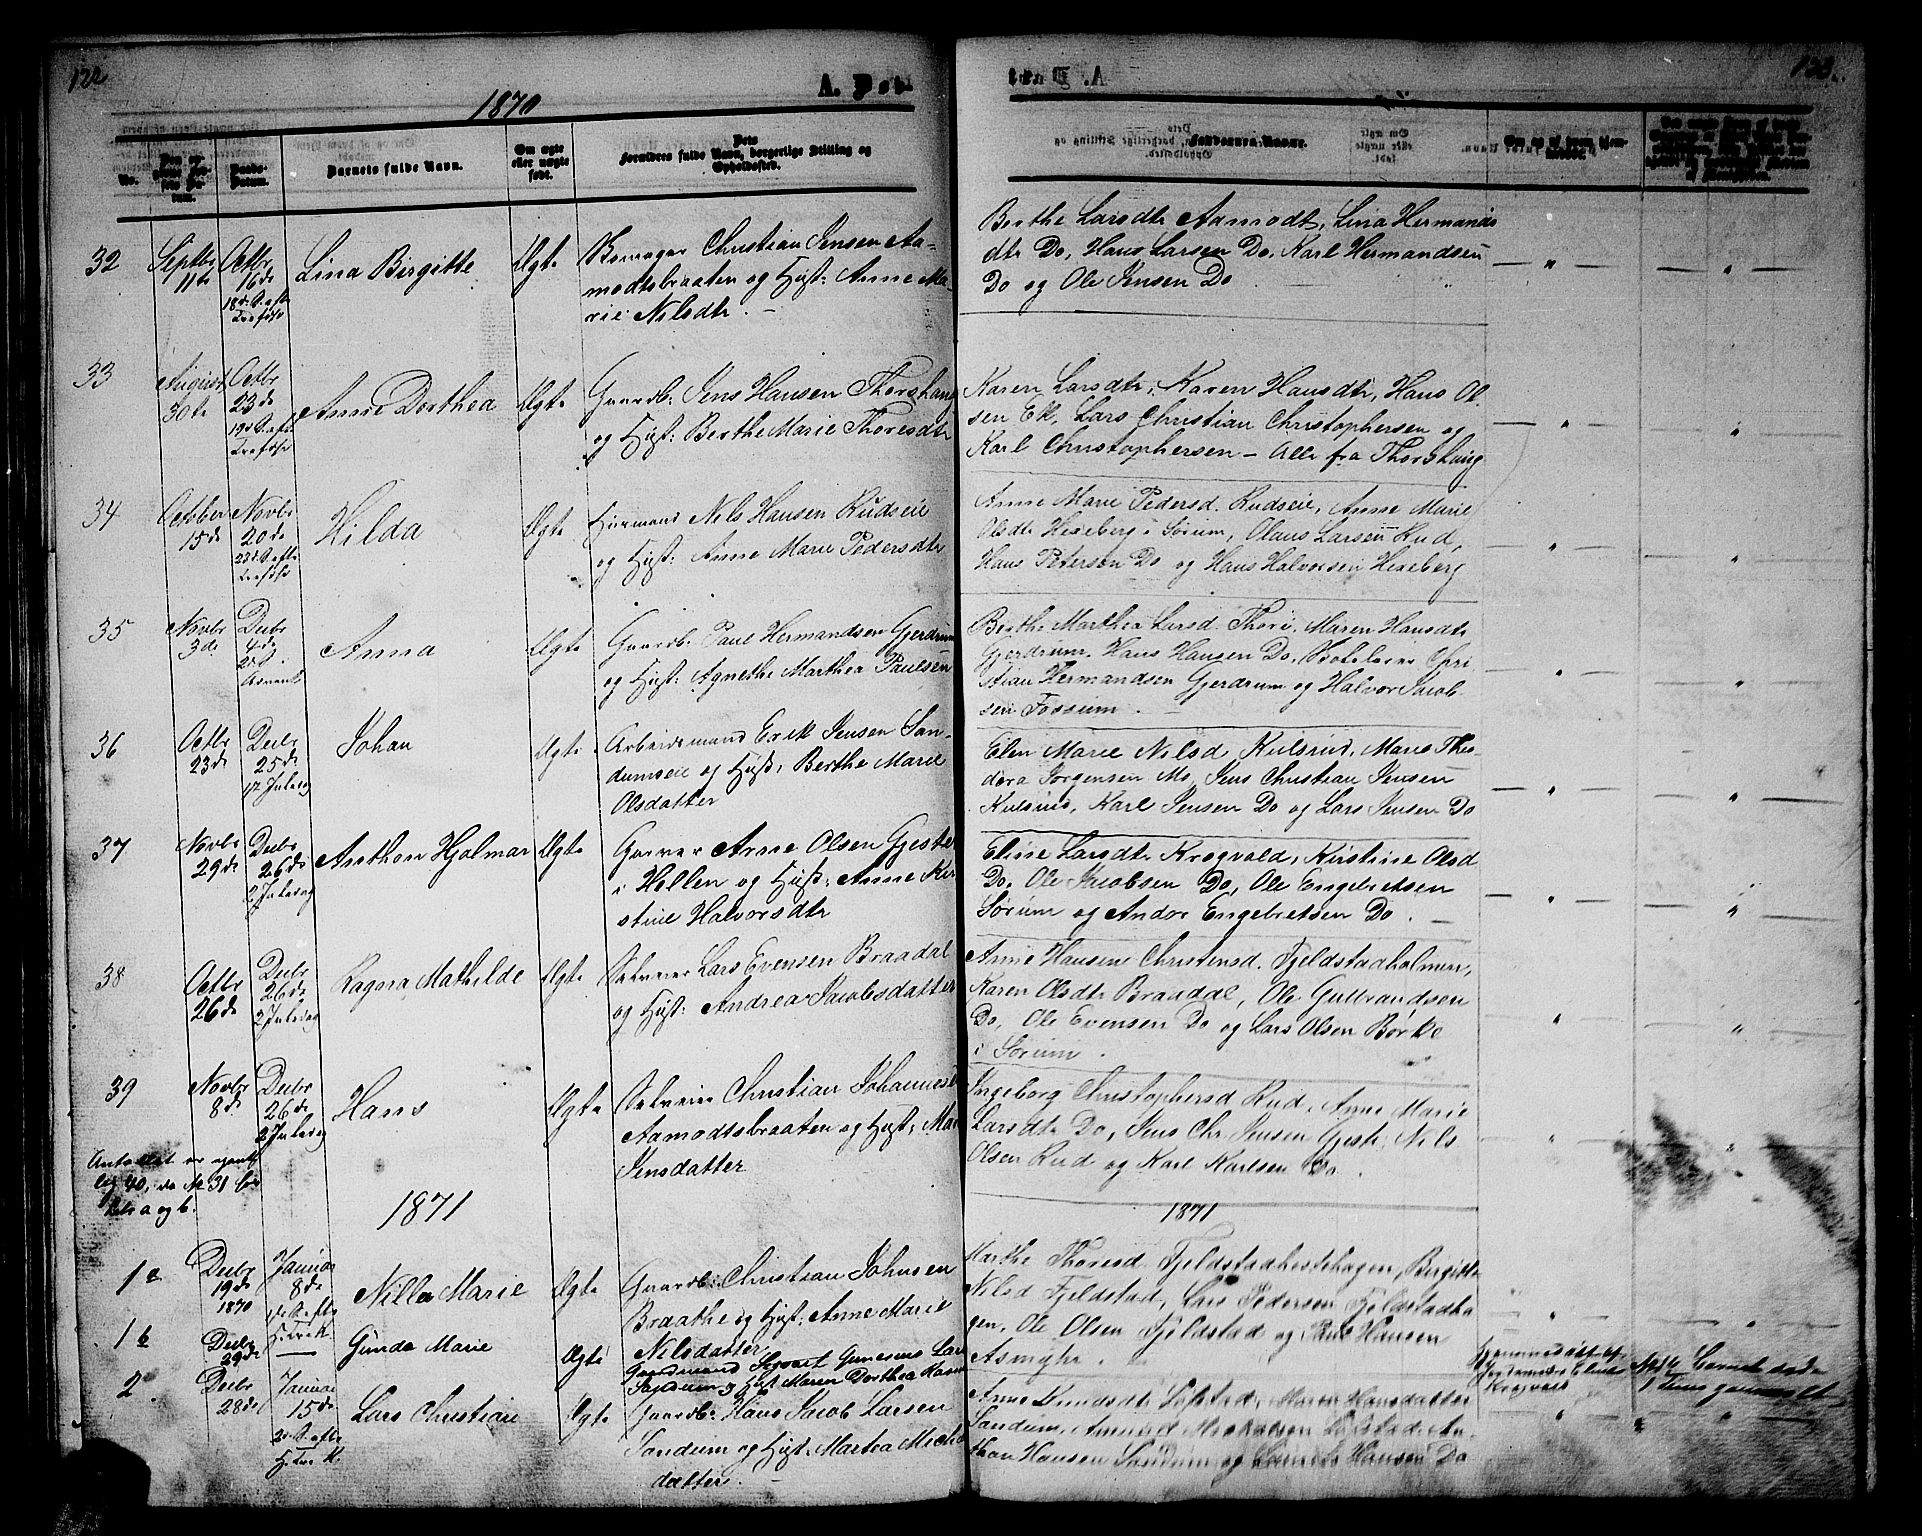 122
1870
A. Døb
No.
Barnets fulde Navn.
Om ægte
eller uægte
født.
Dets
Forældres fulde Navn, borgerlige Stilling og
Opholdssted.
32
Septbr
11te
Octbr
16de
18de S. eft.
Trefdsh
Lina Birgitte
Ægte
Christian Jensen Aa-
modtsbraaten og Hust: Anne Ma-
rie Nilsdtr. -
33
August
30te
Octbr
23de
19de S. eft
Trefdsh
Anne Dorthea
Ægte
Gaardb: Jens Hansen Thorshaug
og Hust: Berthe Marie Thoresdtr
34
October
15de
Novbr
20de
23de S. eft
Trefdsh
Hilda
Ægte
Huusmand Nils Hansen Rudseie
og Hust: Anne Marie Pedersdtr
35
Novbr
3de
Decbr
4de
2. S.
Advent
Anna
Ægte
Gaardb: Paul Hermandsen Gjerdrum
og Hust: Agnethe Marthea Paulsen
36
Octbr
23de
Decbr
25de
1ste Juledag
Johan
Ægte
Arbeidsmand Erik Jensen San-
dumseie og Hust, Berthe Marie
Olsdatter
37
Novbr
29de
Decbr
26de
2 Juledag
Anthon Hjalmar
Ægte
Garver Arne Olsen Gjeste
i Hellen og Hust: Anne Kir
stine Halvorsdtr
38
Octbr
26de
Decbr
26de
2 Juledag
Ragna Mathilde
Ægte
Selveier Lars Evensen Braadal
og Hust: Andrea Jacobsdatter
39
Novbr
8de
Decbr
26de
2 Juledag
Hans
Ægte
Selveier Christian Johannesen
Aamodtsbraaten og Hust, Mari
Jensdatter
Antallet er egent-
lig 40, da No 31 be
a og b.
1871
1a
Decbr
19de
1870
Januar
8de
1ste S. eft
H. tre K.
Nilla Marie
Ægte
Gaardb: Christian Johnsen
Braathe og Hust: Anne Marie
Nilsdatter
1b
Decbr
29de
Gunda Marie
Ægte
Sandum og Hust Maren Dorthea
2
Decbr
28de
Januar
15de
2. S. eft
H. tre K.
Lars Christian
Ægte
Gaardb: Hans Jacob Larsen
Sandum og Hust. Marthea Michel
datter. -
A. Døbt
123.
Faddernes Navne.
Berthe Larsdtr Aamodt, Lina Hermands
dtr Do, Hans Larsen Do, Karl Hermandsen
Do og Ole Jensen Do
Karen Larsdtr, Karen Hansdtr, Hans Ol
sen Ek, Lars Christian Christophersen og
Karl Christophersen - Alle fra Thorshaug
Anne Marie Pedersd. Rudseie, Anne Marie
Olsdtr Hexeberg i Sørum, Olaus Larsen Rud,
Hans Petersen Do og Hans Halvorsen Hexeberg
Berthe Marthea Larsd. Thori, Maren Hansdtr
Gjerdrum. Hans Hansen Do, Chri
stian Hermandsen Gjerdrum og Halvor Jacob
sen Fossum. -
Elen Marie Nilsd Kulsrud, Maris Theo
dora Jørgensen Mo, Jens Christian Jensen
Kulsrud, Karl Jensen Do og Lars Jensen Do
Eline Larsdtr Krogvold, Kirstine Olsd
Do, Ole Jacobsen Do, Ole Engebretsen
Sørum og Andr. Engebretsen Do. -
Anne Hansine Christensd. Fjeldstadholmen,
Karen Olsdtr Braadal, Ole Gulbrandsen
Do, Ole Evensen Do og Lars Olsen Børke
i Sørum.
Ingeborg Christophersd Rud, Anne Marie
Larsdtr Do, Jens Chr. Jensen Gjeste, Nils
Olsen Rud og Karl Karlsen Do.
1871
Marthe Thoresd Fjeldstadhestehagen, Birgitte
Nilsd Fjeldstad, Lars Pedersen Fjeldstadha
gen, Ole Olsen Fjeldstad og Paul Hansen
Asmyhr.
Hjemmedøbt af
Eline
Krogvold
Anne Knudsdtr Lofstad, Maren Hansdatter
Sandum, Amund Michalsen Lofstad, An
thon Hansen Sandum og Laurits Hansen Do